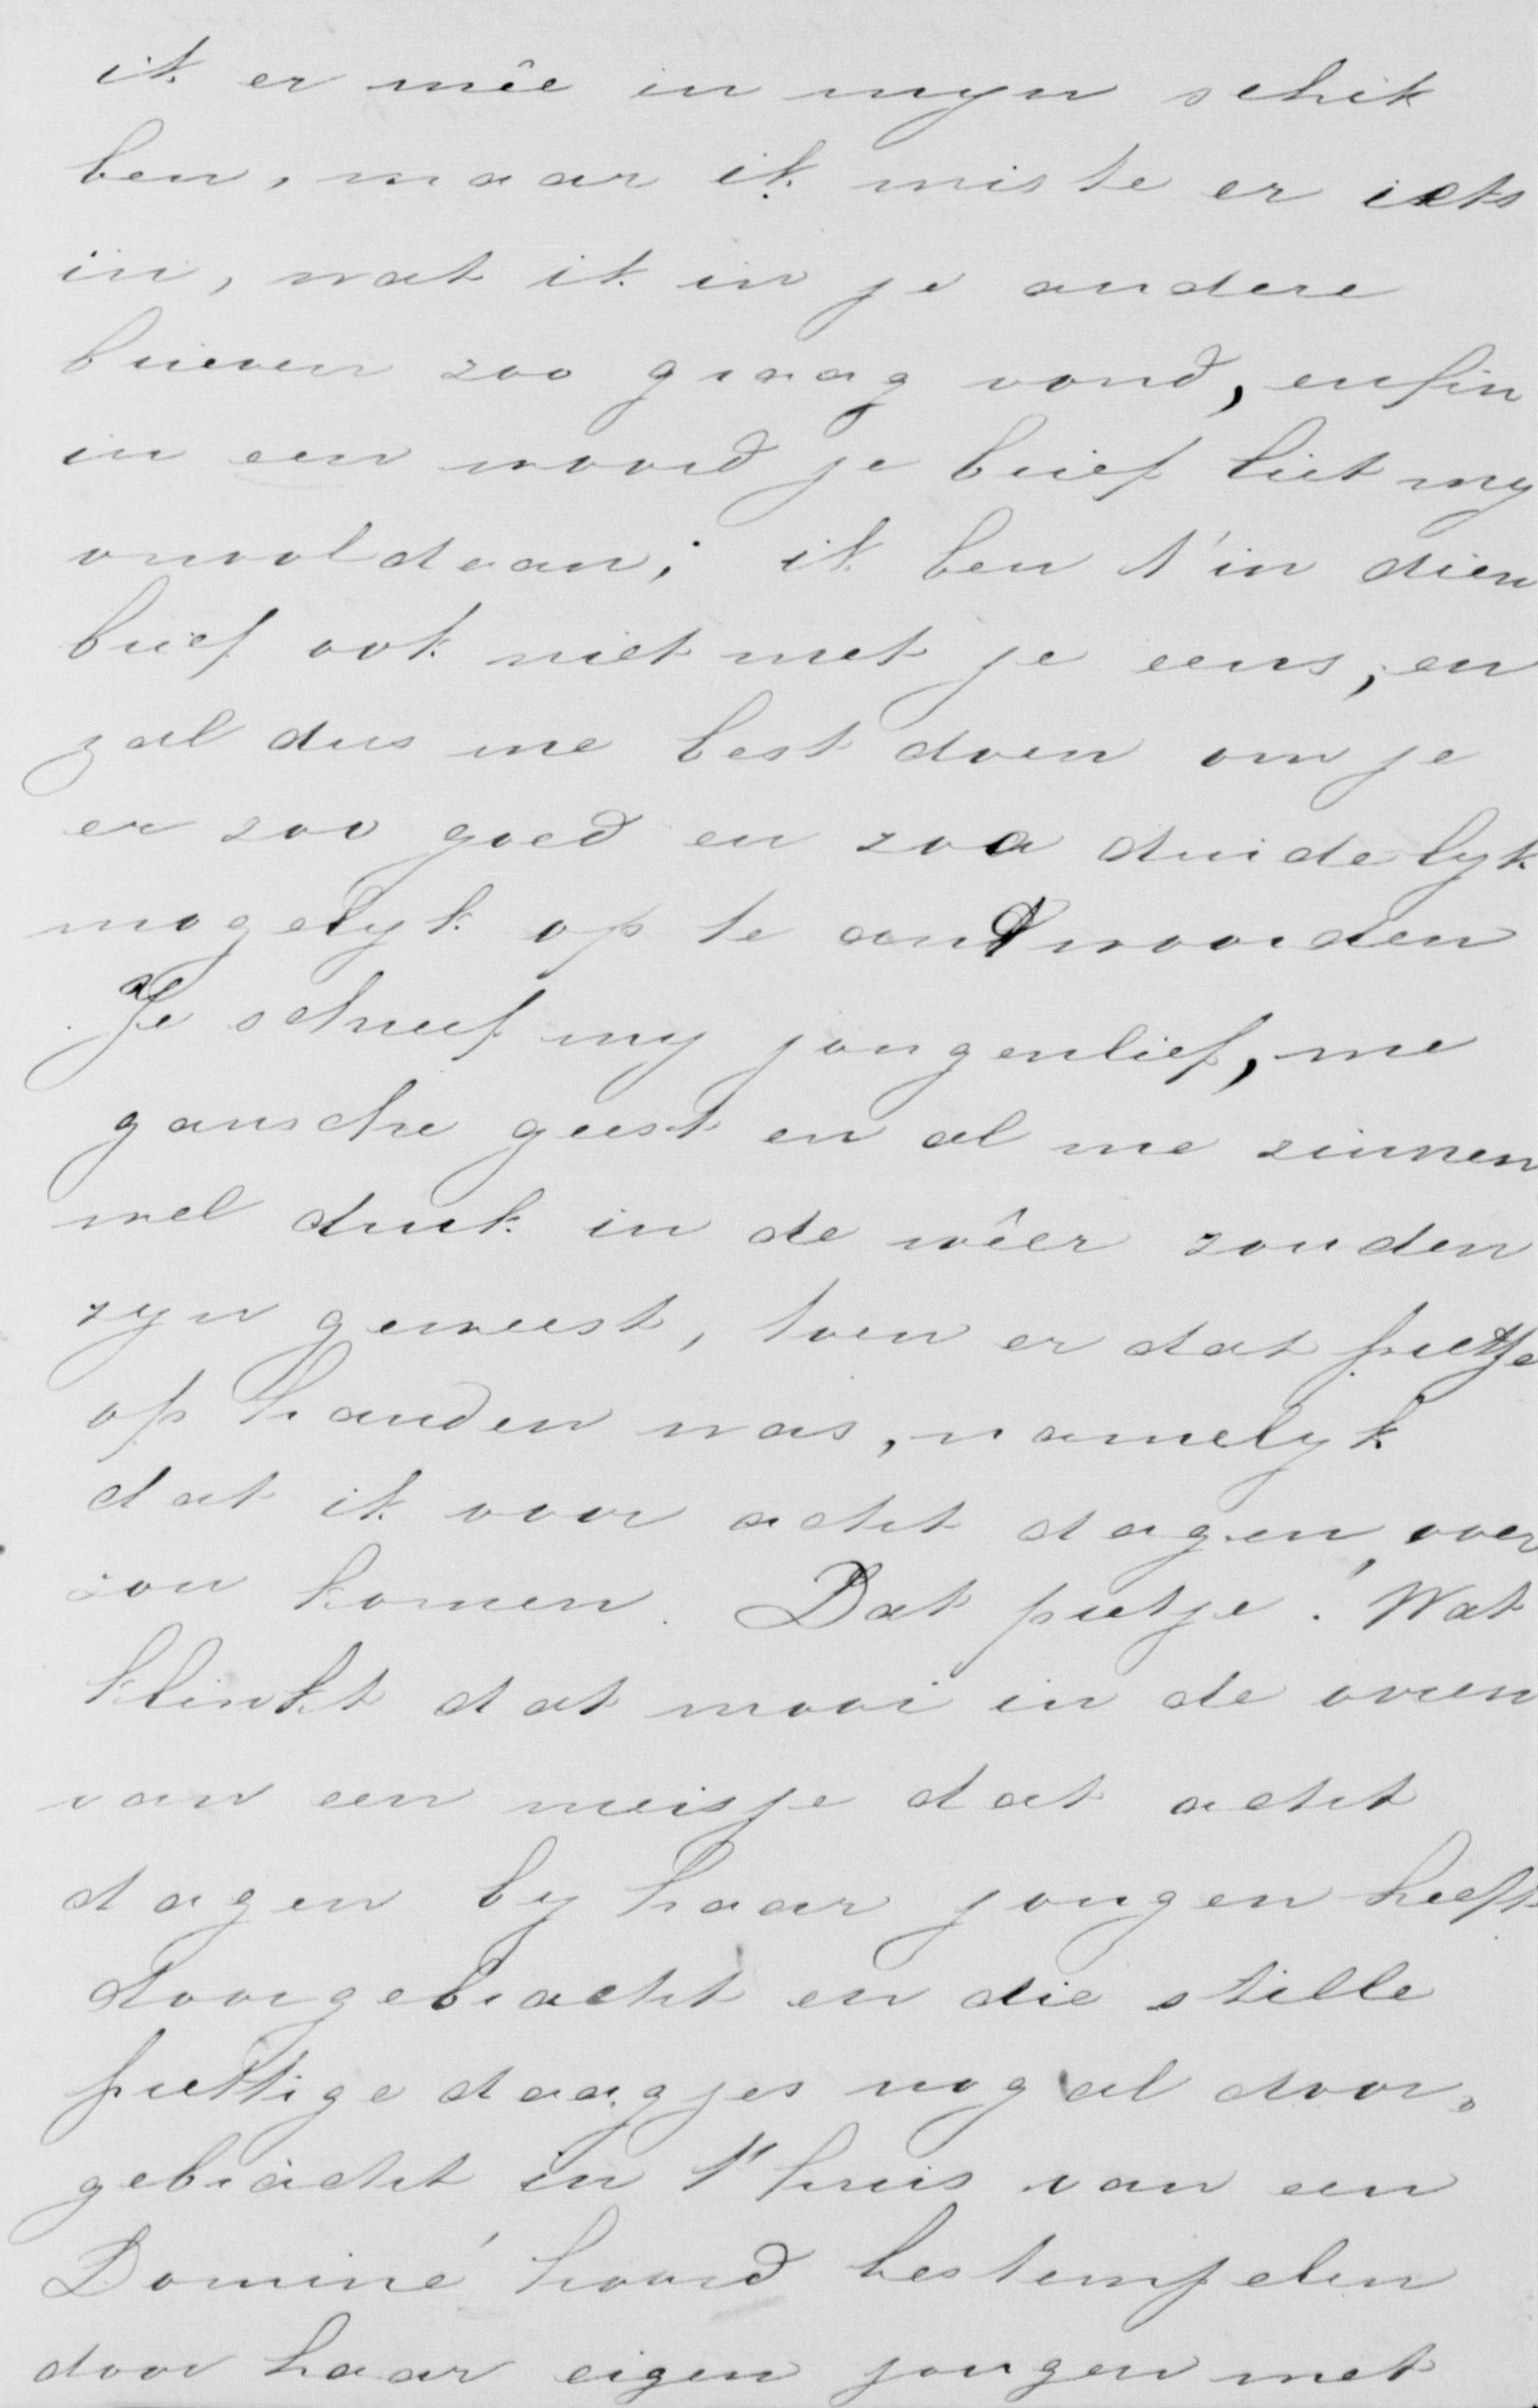 ik er mêe in myn schik
ben, maar ik miste er iets
in, wat ik in je andere
brieven zoo graag vond, enfin
in een woord je brief liet my
onvoldaan; ik ben t'in dien
brief ook niet met je eens, en
zal dus me best doen om je
er zoo goed en zoo duidelyk
mogelyk op te andwoorden
Je schreef my jongenlief, me
gansche geest en al me zinnen
wel druk in de wêer zouden
zyn geweest, toen er dat pretje
op handen was, namelyk
dat ik voor acht dagen over
zou komen. Dat pretje! Wat
klinkt dat mooi in de ooren
van een meisje dat acht
dagen by haar jongen heeft
doorgebracht en die stille
prettige daagjes nog al door„
gebracht in 't huis van een
Dominé hoord bestempelen
door haar eigen jongen met